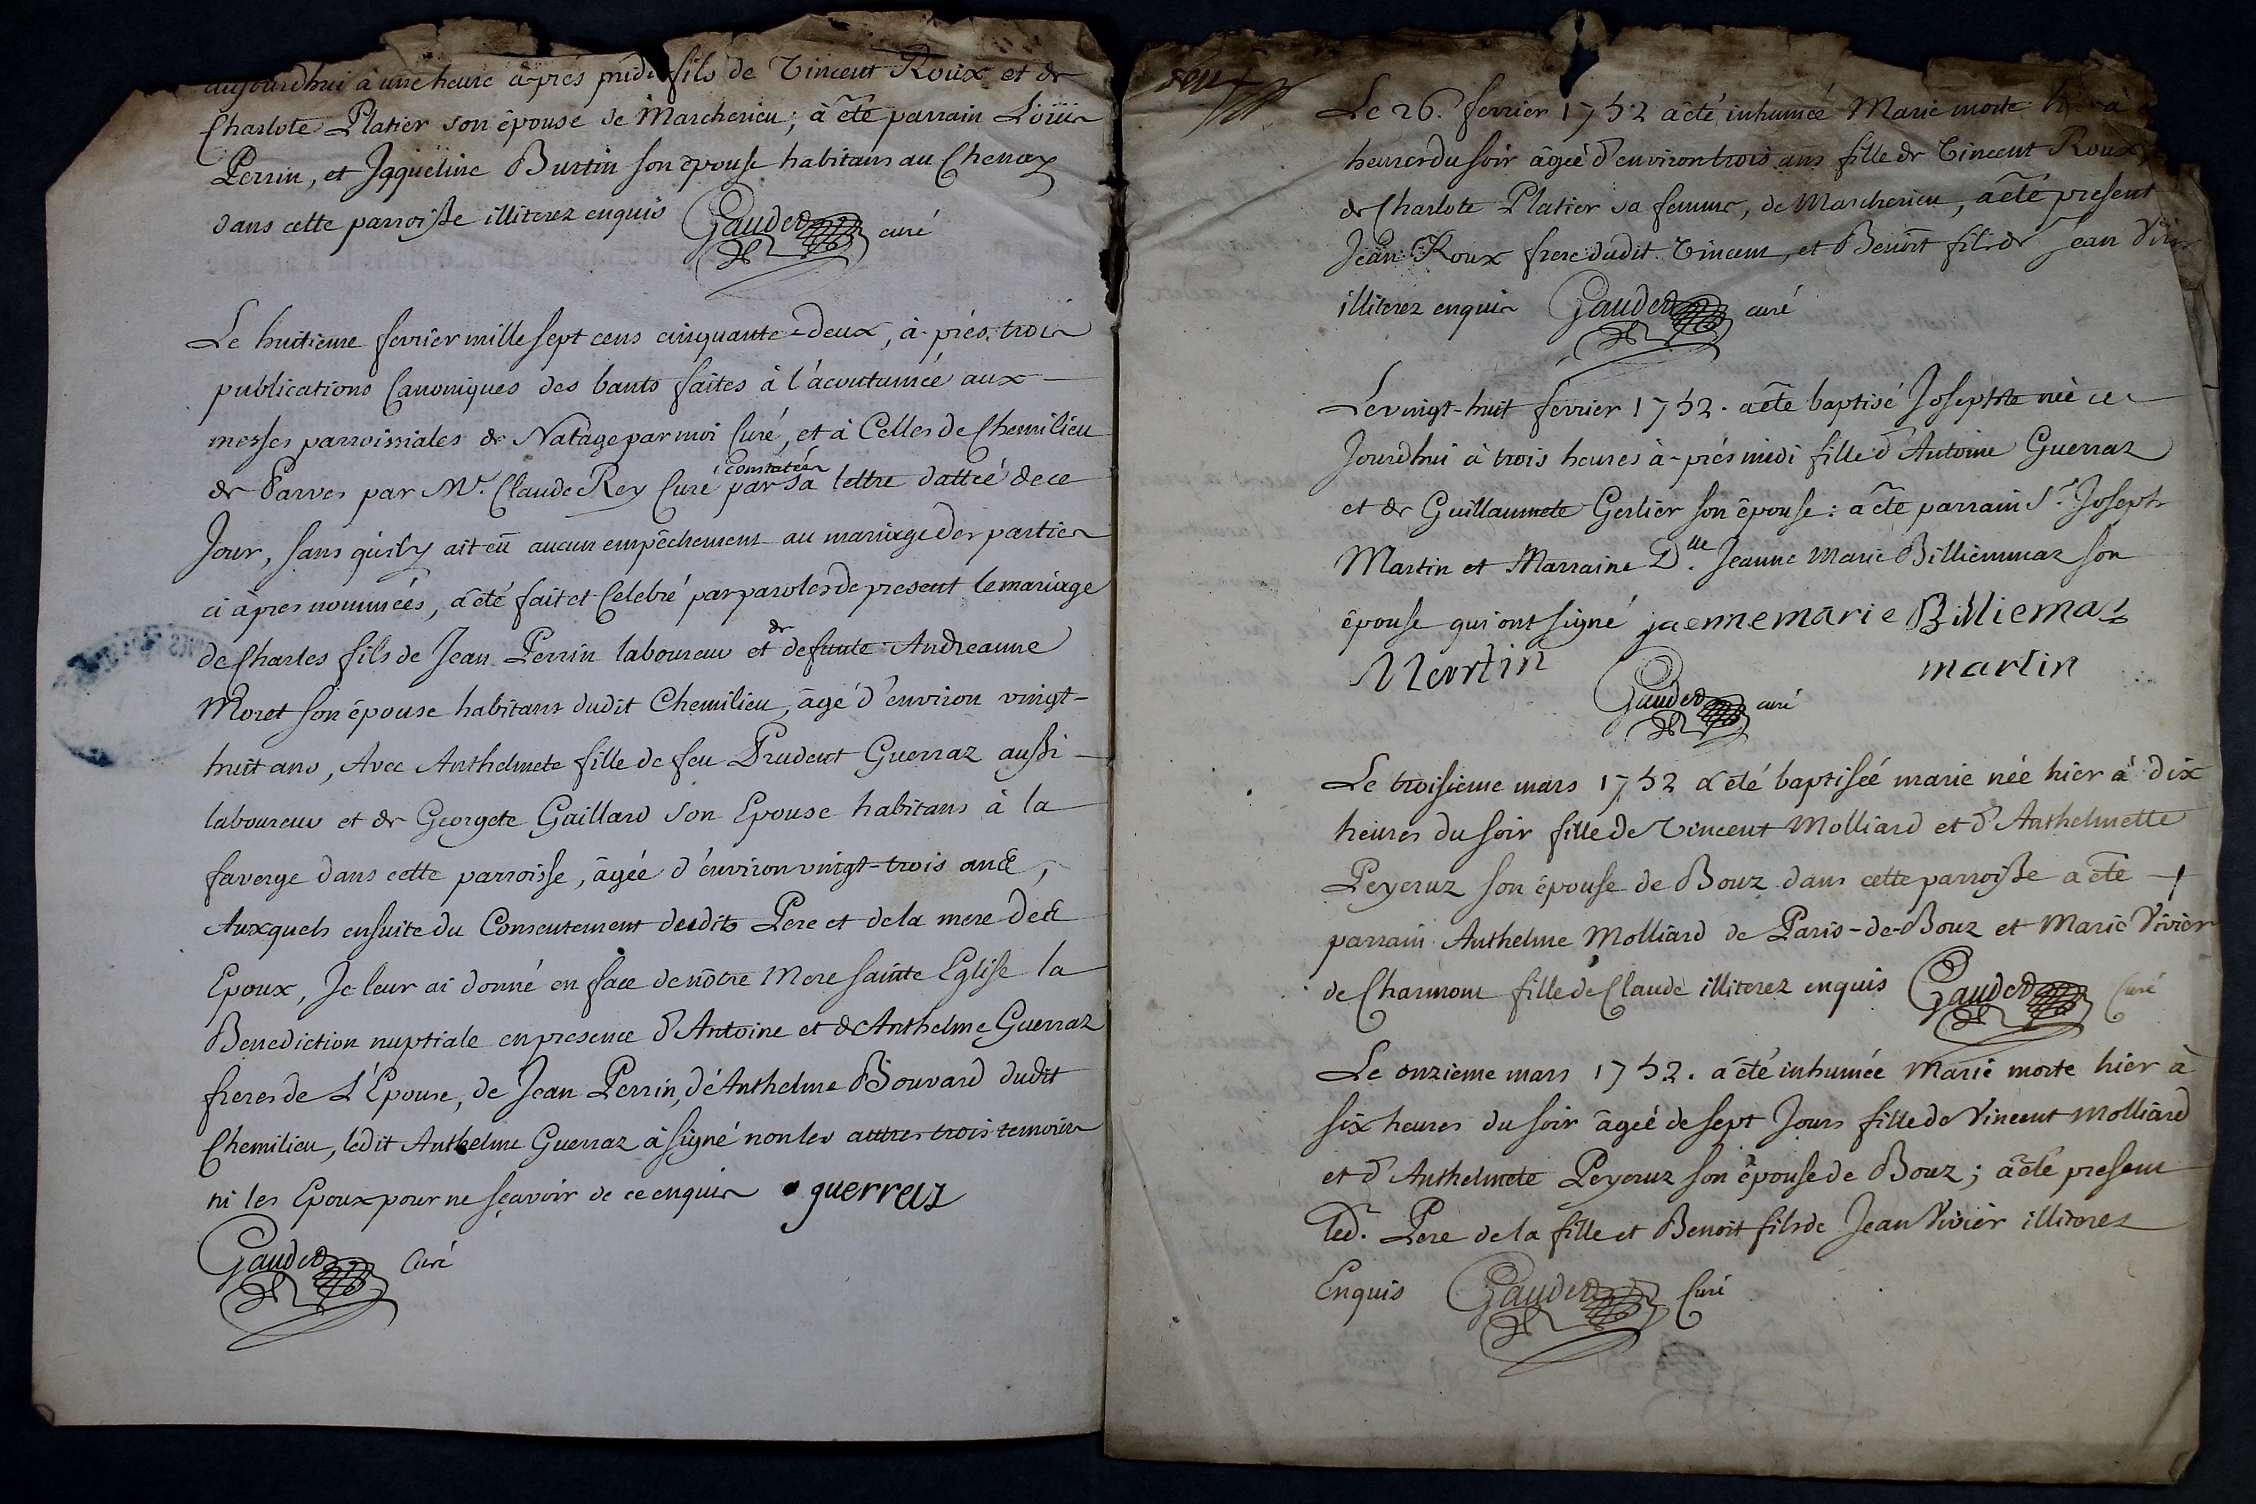 aujourdhui à une heure à-prés midi fils de Vincent Roux et de
Charlote Platier son épouse de Marcherieu; à été parrain Loüis
Perrin, et Jaqueline Burtin son épouse habitans au Chenay
dans cette parroisse illiterez enquis Gaudet curé
Le huitieme fevrier mille sept cens cinquante-deux, à-prés trois
publications Canoniques des bants faites à l'acoutumée aux
messes parroissiales de Natage par moi Curé, et à Celles de Chemilieu
constatées
de Parves par Mr. Claude Rey Curé par sa lettre dattée de ce
Jour, sans qu'il y ait eû aucun empêchement au mariage des parties
ci àpres nommées, à été fait et Celebré par paroles de present le mariage
de Charles fils de Jean Perrin laboureur et de defunte Andreanne
Moret son épouse habitans dudit Chemilieu, âgé d'environ vingt-
huit ans, Avec Anthelmete fille de feu Prudent Guerraz aussi
laboureur et de Georgete Gaillard son Epouse habitans à la
faverge dans cette parroisse, âgée d'environ vingt-trois ans,
Auxquels ensuite du Consentement desdits Pere et de la mere des
Epoux, Je leur ai donné en face de nôtre Mere sainte Eglise la
Benediction nuptiale en presence d'Antoine et de Anthelme Guerraz
freres de L'Epouse, de Jean Perrin, d'Anthelme Bouvard dudit
Chemilieu, ledit Anthelme Guerraz à signé non les autres trois temoins
ni les Epoux pour ne sçavoir de ce enquis guerraz
Gaudet Curé
Le 26. fevrier 1752 a été inhumée Marie morte hier à
heures du soir âgée d'environ trois ans fille de Vincent Roux
de Charlote Platier sa femme, de Marcherieu, a été present
Jean Roux frere dudit Vincent, et Benoît fils de Jean
illiterez enquis Gaudet curé
Le vingt-huit fevrier 1752. a été baptisé Josephte née ce
Jourdhui à trois heures à-prés midi fille d'Antoine Guerraz
et de Guillaumete Gerlier son épouse: a été parrain Sr. Joseph
Martin et Marraine Dlle. Jeanne Marie Billiemmaz son
épouse qui ont signé jaennemarie Billiemaz
Martin martin
Gaudet curé
Le troisieme mars 1752 a été baptisée marie née hier à dix
heures du soir fille de Vincent Molliard et d'Anthelmette
Peycruz son épouse de Bouz dans cette parroisse a été
parrain Anthelme Molliard de Paris-de-Bouz et Marie Vivier
de Charmont fille de Claude illiterez enquis Gaudet Curé
Le onzieme mars 1752. a été inhumée Marie morte hier à
six heures du soir âgée de sept Jours fille de Vincent Molliard
et d'Anthelmete Peycruz son épouse de Bouz; à été present
led. Pere de la fille et Benoit fils de Jean Vivier illiterez
Enquis Gaudet Curé